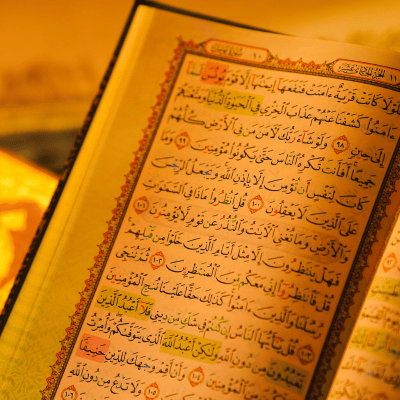 الجزء الحادي عشر ١١
سورة يونس ١٠
فَلَوْلَا كَانَتْ قَرْيَةٌ ءَامَنَتْ فَنَفَعَهَآ إِيمَٰنُهَآ إِلَّا قَوْمَ يُونُسَ لَمَّآ
ءَامَنُوا۟ كَشَفْنَا عَنْهُمْ عَذَابَ ٱلْخِزْىِ فِى ٱلْحَيَوٰةِ ٱلدُّنْيَا وَمَتَّعْنَٰهُمْ
إِلَىٰ حِينٍ ٩٨ وَلَوْ شَآءَ رَبُّكَ لَءَامَنَ مَن فِى ٱلْأَرْضِ كُلُّهُمْ
جَمِيعًا أَفَأَنتَ تُكْرِهُ ٱلنَّاسَ حَتَّىٰ يَكُونُوا۟ مُؤْمِنِينَ ٩٩ وَمَا
كَانَ لِنَفْسٍ أَن تُؤْمِنَ إِلَّا بِإِذْنِ ٱللَّهِ وَيَجْعَلُ ٱلرِّجْسَ
عَلَى ٱلَّذِينَ لَا يَعْقِلُونَ ١٠٠ قُلِ ٱنظُرُوا۟ مَاذَا فِى ٱلسَّمَٰوَٰتِ
وَٱلْأَرْضِ وَمَا تُغْنِى ٱلْءَايَٰتُ وَٱلنُّذُرُ عَن قَوْمٍ لَّا يُؤْمِنُونَ ١٠١
فَهَلْ يَنتَظِرُونَ إِلَّا مِثْلَ أَيَّامِ ٱلَّذِينَ خَلَوْا۟ مِن قَبْلِهِمْ
قُلْ فَٱنتَظِرُوٓا۟ إِنِّى مَعَكُم مِّنَ ٱلْمُنتَظِرِينَ ١٠٢ ثُمَّ نُنَجِّى
رُسُلَنَا وَٱلَّذِينَ ءَامَنُوا۟ كَذَٰلِكَ حَقًّا عَلَيْنَا نُنجِ ٱلْمُؤْمِنِينَ
١٠٣ قُلْ يَٰٓأَيُّهَا ٱلنَّاسُ إِن كُنتُمْ فِى شَكٍّ مِّن دِينِى فَلَآ أَعْبُدُ ٱلَّذِينَ
تَعْبُدُونَ مِن دُونِ ٱللَّهِ وَلَٰكِنْ أَعْبُدُ ٱللَّهَ ٱلَّذِى يَتَوَفَّىٰكُمْ وَأُمِرْتُ
مِنَ ٱلْمُؤْمِنِينَ ١٠٤ وَأَنْ أَقِمْ وَجْهَكَ لِلدِّينِ حَنِيفًا
١٠٥ وَلَا تَدْعُ مِن دُونِ ٱللَّهِ
١٠٦